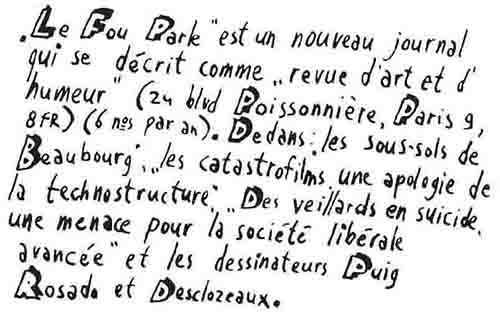 „Le Fou Parle" est un nouveau journal
qui se décrit comme „revue d'art et d'
humeur" (24 blvd Poissonnière, Paris 9,
8 FR) (6 nos par an). Dedans: les sous-sols de
Beaubourg", „les catastrofilms une apologie de
la technostructure". „Des veillards en suicide.
une menace pour la société libérale
avancée" et les dessinateurs Puig
Rosado et Desclozeaux.